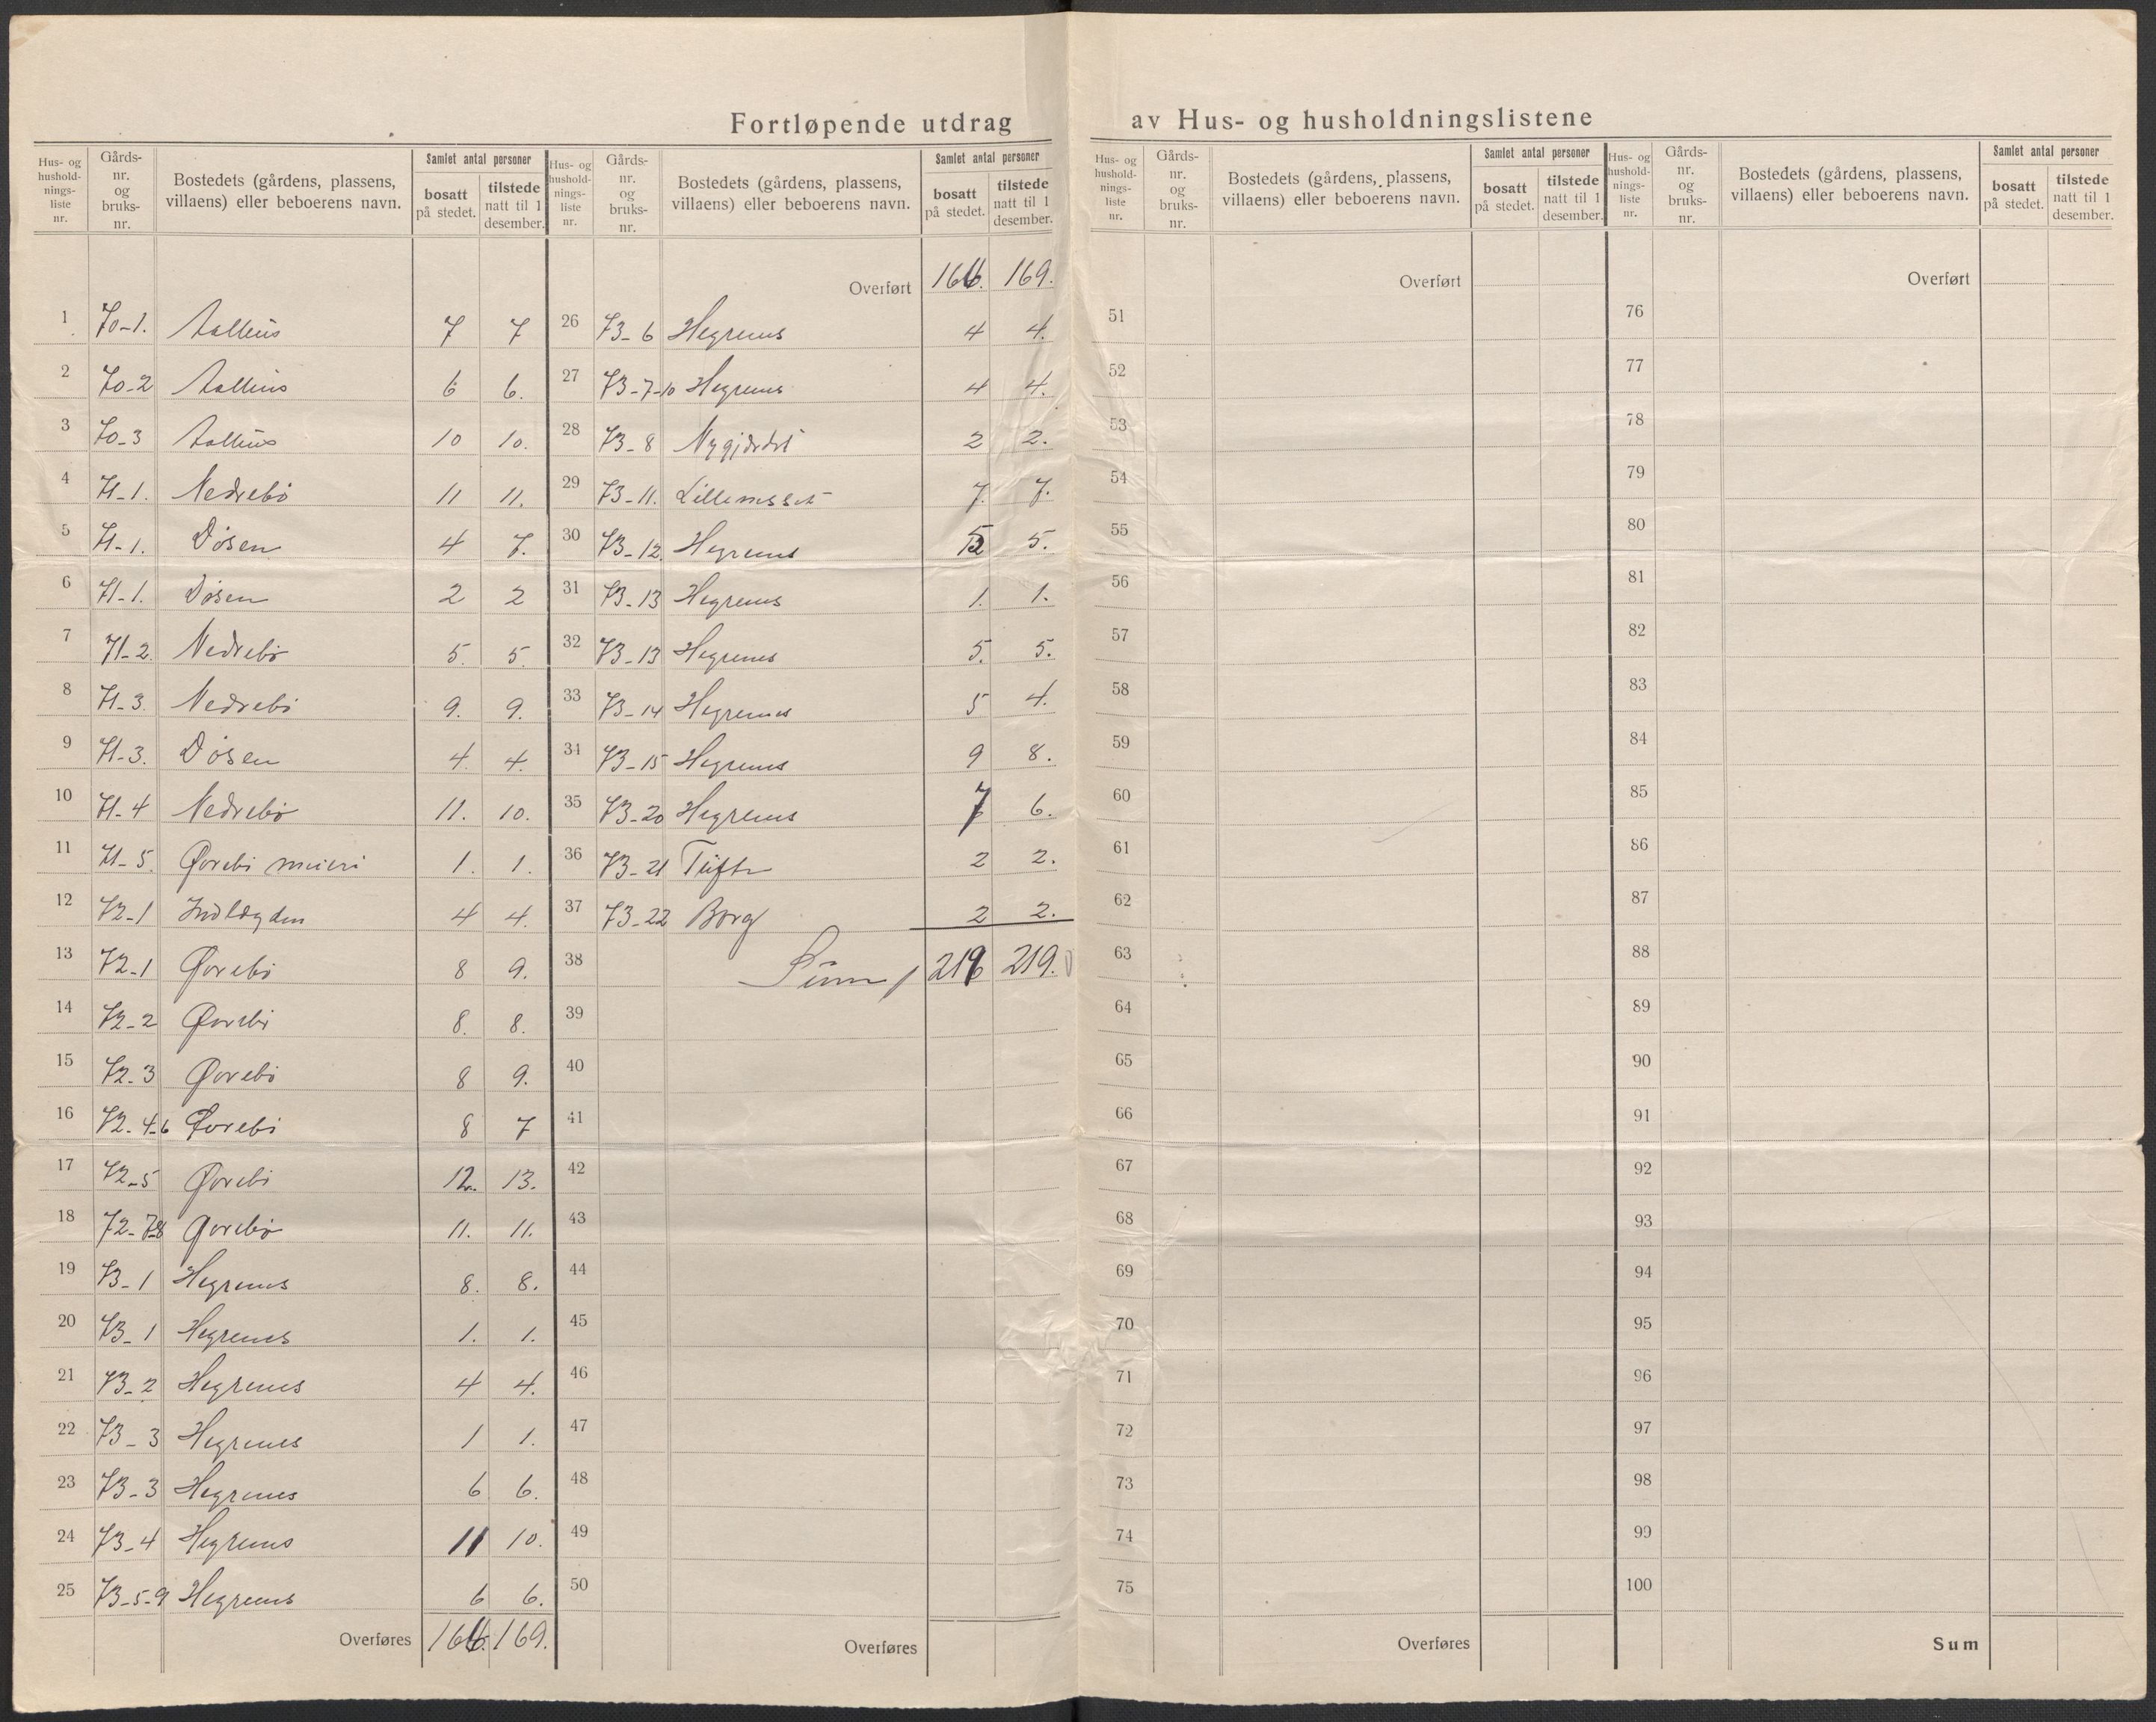 Fortløpende utdrag av Hus- og husholdningslistene
Hus- og hushold-nings-liste nr. Gårds-nr. og bruks-nr. Bostedets (gårdens, plassens, villaens) eller beboerens navn. Samlet antal personer bosatt på stedet. tilstede natt til 1 desember.
1 70-1. 7 7
2 70-2 6 6.
3 70-3 10 10.
4 71-1. Nedrebø 11 11.
5 71-1. Døsen 4 7.
6 71-1. Døsen 2 2
7 71-2. Nedrebø 5. 5.
8 71-3. Nedrebø 9. 9.
9 71-3. Døsen 4. 4.
10 71-4 Nedrebø 11. 10.
11 71-5. Øvrebi meieri 1. 1.
12 72-1 4 4.
13 72-1 Øvrebø 8 9.
14 72-2 Øvrebø 8. 8.
15 72-3 Øvrebø 8 9.
16 72-4-6 Øvrebø 8 7
17 72-5 Øvrebø 12. 13.
18 72-7-8 Øvrebø 11. 11.
19 73-1 Hegrenes 8. 8.
20 73-1 Hegrenes 1. 1.
21 73-2 Hegrenes 4 4.
22 73-3 Hegrenes 1 1.
23 73-3 Hegrenes 6 6.
24 73-4 Hegrenes 11 10.
25 73-5-9 Hegrenes 6 6.
Overføres 166. 169.
Hus- og hushold-nings-liste nr. Gårds-nr. og bruks-nr. Bostedets (gårdens, plassens, villaens) eller beboerens navn. Samlet antal personer bosatt på stedet. tilstede natt til 1 desember.
Overført 166. 169.
26 73-6 Hegrenes 4 4.
27 73-7-10 Hegrenes 4 4.
28 73-8 2 2.
29 73-11. 7. 7.
30 73-12. Hegrenes 5 5.
31 73-13 Hegrenes 1. 1.
32 73-13 Hegrenes 5. 5.
33 73-14 Hegrenes 5 4.
34 73-15 Hegrenes 9 8.
35 73-20 Hegrenes 7 6.
36 73-21 Tuften 2 2.
37 73-22 Borg 2 2.
38 Sum 219.
39
40
41
42
43
44
45
46
47
48
49
50
Overføres
Hus- og hushold-nings-liste nr. Gårds-nr. og bruks-nr. Bostedets (gårdens, plassens, villaens) eller beboerens navn. Samlet antal personer bosatt på stedet. tilstede natt til 1 desember.
Overført
51
52
53
54
55
56
57
58
59
60
61
62
63
64
65
66
67
68
69
70
71
72
73
74
75
Overføres
Hus- og hushold-nings-liste nr. Gårds-nr. og bruks-nr. Bostedets (gårdens, plassens, villaens) eller beboerens navn. Samlet antal personer bosatt på stedet. tilstede natt til 1 desember.
Overført
76
77
78
79
80
81
82
83
84
85
86
87
88
89
90
91
92
93
94
95
96
97
98
99
100
Sum